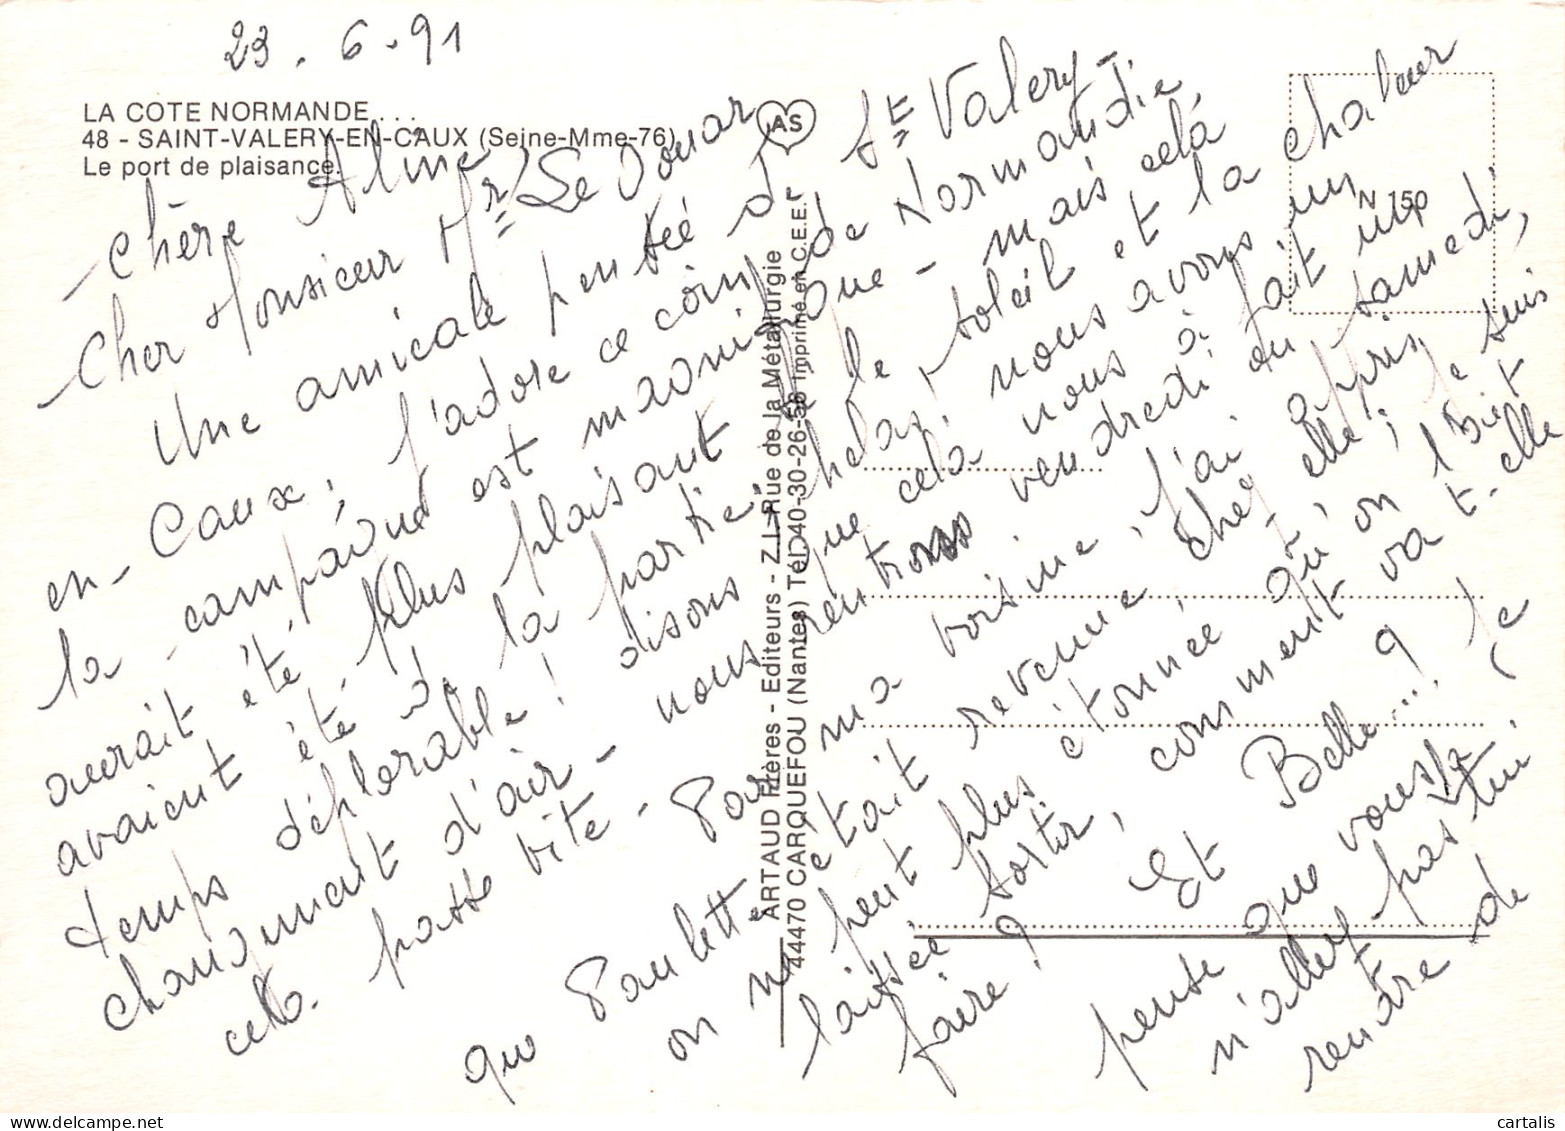 23.6.91
LA COTE NORMANDE...
48 - SAINT-VALERY-EN-CAUX (Seine-Mme-76)
Le port de plaisance.
AS
N 150
ARTAUD Frères - Editeurs - Z.I. Rue de la Métallurgie
44470 CARQUEFOU (Nantes) Tél. 40-30-26-56 Imprimé en C.E.E.
Chère Aline
Cher Monsieur Mr Le
Une amicale pensée de St Valery-
en-Caux; J'adore ce coin de Normandie,
la campagne est magnifique - mais celà
aurait été plus plaisant si le soleil et la chaleur
avaient été de la partie, helas, nous avons un
temps déplorable! disons que celà nous à fait un
changement d'air - nous rentrons vendredi ou samedi,
cela passe vite - Par ma voisine, j'ai appris
que Paulette était revenue chez elle; je suis
on ne peut plus étonnée qu'on l'ait
laissée sortir, comment va t-elle
faire? Et Belle...? Je
pense que vous
n'allez pas lui
rendre de